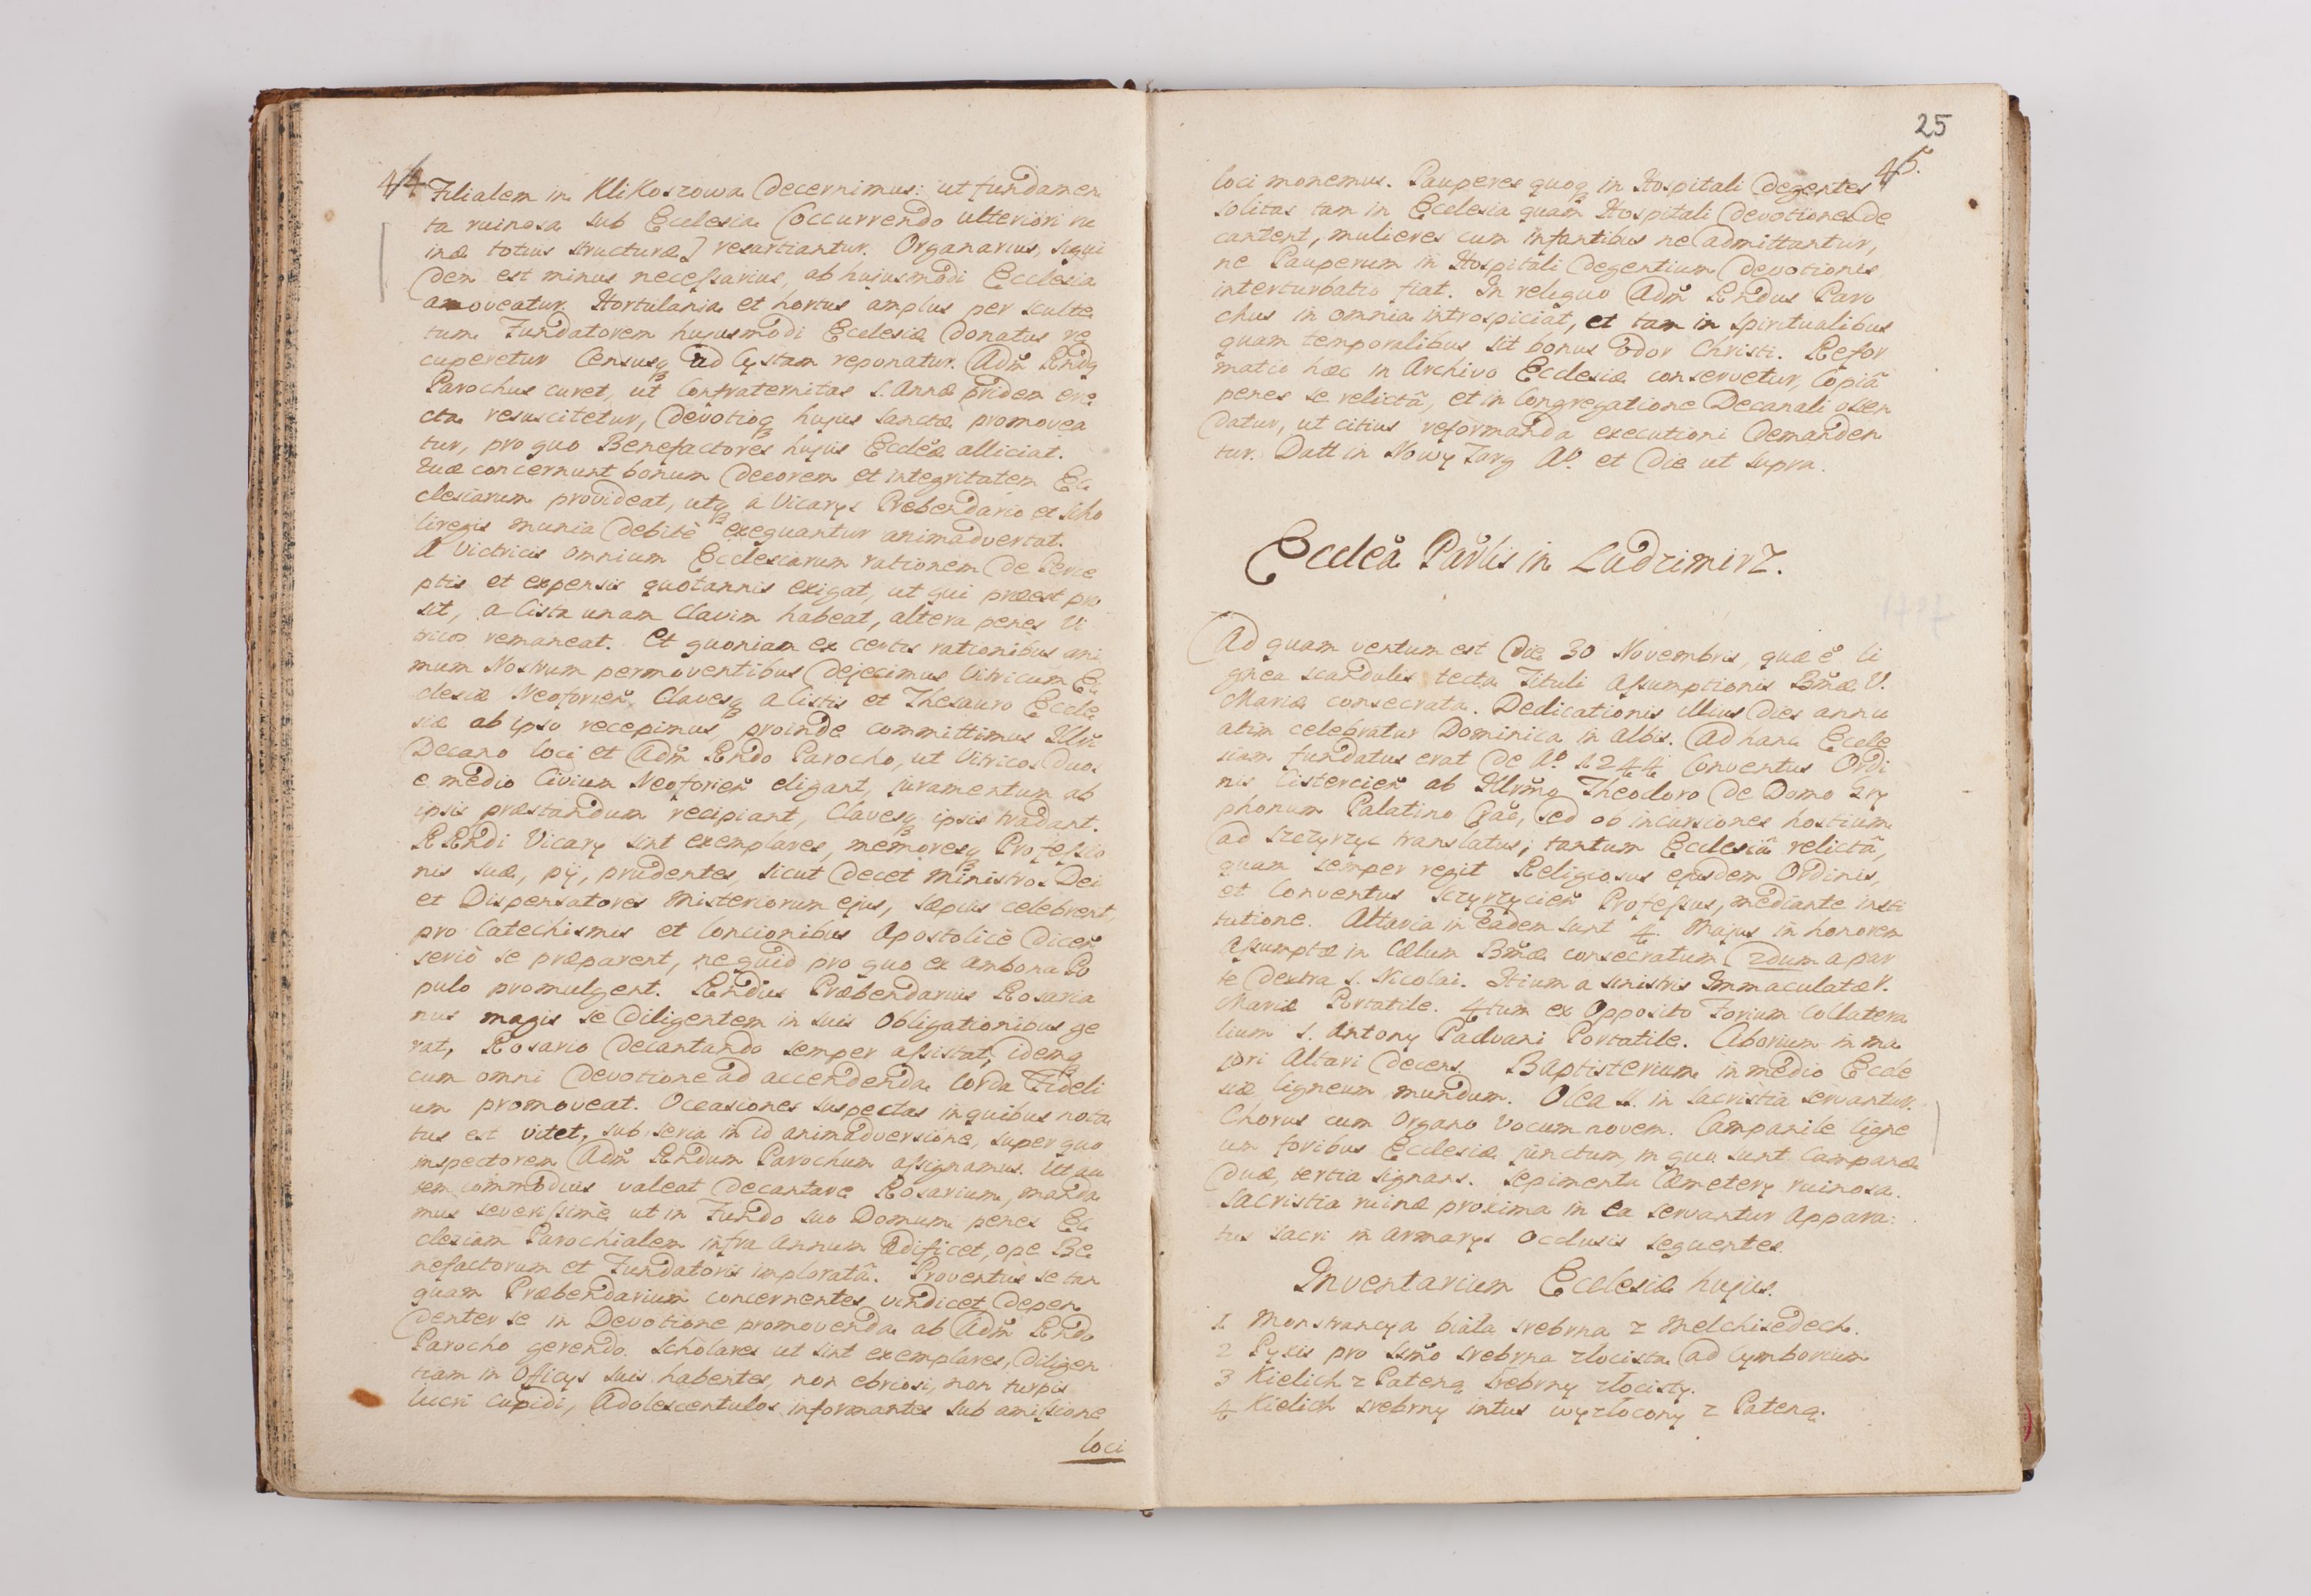 44
Filialem in Klikoszowa decernimus: ut fundamen
ta ruinosa sub Ecclesia [occurrendo ulteriori ru
inæ totius structuræ] resartiantur. Organarius, siqui
dem est minus necessarius, ab hujusmodi Ecclesia
amoveatur. Hortulania et hortus amplus per Sculte
tum Fundatorem hujusmodi Ecclesiæ donatus re
cuperetur Censusq₃ ad Cystam reponatur. Adm̃ Rndq
Parochus curet, ut Confraternitas S. Annæ pridem ere
cta resuscitetur, devotioq₃ hujus Sanctæ promovea
tur, pro quo Benefactores hujus Eccleæ alliciat.
Quæ concernunt bonum decorem et integritatem Ec
clesiarum provideat, utq₃ a Vicarys Præbendario et Scho
liregis munia debitè exequantur animadvertat.
A Victricis omnium Ecclesiarum rationem de Perce
ptis et expensis quotannis exigat, ut qui præest pro
sit, a Cista unam Clavim habeat, altera penes Vi
tricos remaneat. Et quoniam ex certis rationibus ani
mum Nostrum permoventibus dejecimus Vitricum Ec
clesiæ Neoforien̄ Clavesq₃ a Cistis et Thesauro Eccle
siæ ab ipso recepimus, proinde committimus Illri
Decano loci et Adm̃ Rndo Parocho, ut Vitricos duos
e medio Civium Neoforien̄ eligant, juramentum ab
ipsis præstandum recipiant, Clavesq₃ ipsis tradant.
RRndi Vicary sint exemplares, memoresq₃ Professio
nis suæ, pÿ, prudentes, sicut decet Ministros Dei
et Dispensatores Misteriorum ejus, sæpius celebrent,
pro Catechismis et Concionibus Apostolicè dicen̄
seriò se præparent, ne quid pro quo ex ambona Po
pulo promulgent. Rndus Præbendarius Rosaria
nus magis se diligentem in suis Obligationibus ge
rat, Rosario decantando semper assistat, idemq₃
cum omni devotione ad accendenda Corda Fideli
um promoveat. Occasiones suspectas in quibus nota
tus est vitet, sub seria in id animadversione, super quo
inspectorem Adm̃ Rndum Parochum assignamus. Ut au
tem commodius valeat decantare Rosarium, manda
mus severissimè ut in Fundo suo Domum penes Ec
clesiam Parochialem infra Annum ædificet, ope Be
nefactorum et Fundatoris imploratâ. Proventus se tan
quam Præbendarium concernentes vindicet, depen
denter se in Devotione promovenda ab Adm̃ Rndo
Parocho gerendo. Scholares ut sint exemplares, diligen
tiam in Officys suis habentes, non ebriosi, non turpis
lucri cupidi, Adolescentulos informantes sub amissione
loci
25
45.
loci monemus. Pauperes quoq₃ in Hospitali degentes
solitas tam in Ecclesia quam Hospitali devotiones de
cantent, mulieres cum infantibus ne admittantur,
ne Pauperum in Hospitali degentium devotionis
interturbatio fiat. In reliquo Adm̃ Rndus Paro
chus in omnia introspiciat, et tam in spiritualibus
quam temporalibus sit bonus odor Christi. Refor
matio hæc in Archivo Ecclesiæ conservetur, Copiâ
penes se relictâ, et in Congregatione Decanali osten
datur, ut citius reformanda executioni demanden
tur. Datt in Nowy Targ Aº. et die ut supra.
Ecclea Parlis in Ludzimirz.
Ad quam ventum est die 30 Novembris, quæ ẽ li
gnea scandulis tecta Tituli Assumptionis Bmæ V.
Mariæ consecrata. Dedicationis illius dies annu
atim celebratur Dominica in Albis. Ad hanc Eccle
siam fundatus erat de Aº 1244 Conventus Ordi
nis Cistercien̄ ab Illrmo Theodoro de Domo Gry
phonum Palatino Crac, sed ob incursiones hostium
ad Szczyrzyc translatus, tantum Ecclesiâ relictâ,
quam semper regit Religiosus ejusdem Ordinis,
et Conventus Sczyrzycien̄ Professus, mediante insti
tutione. Altaria in eadem sunt 4. Majus in honorem
Assumptæ in Cælum Bmæ consecratum. 2dum a par
te dextra S. Nicolai. 3tium a sinistris Immaculatæ V.
Mariæ Portatile. 4tum ex Opposito Forium Collatera
lium S. Antony Paduani Portatile. Ciborium in ma
jori Altari decens. Baptisterium in medio Eccle
siæ ligneum mundum. Olea SS. in Sacristia servantur.
Chorus cum Organo Vocum novem. Campanile ligne
um foribus Ecclesiæ junctum, in quo sunt Campanæ
duæ, tertia signans. Sepimenta Cæmetery ruinosa.
Sacristia ruinæ proxima in ea servantur Appara:
tus Sacri in armarys occlusis sequentes.
Inventarium Ecclesiæ hujus.
1 Monstrancya biała srebrna z Melchisedech.
2 Pyxis pro Ssmo srebrna złocista ad Cymborium
3 Kielich z Pateną Srebrny złocisty.
4 Kielich srebrny intus wyzłocony z Pateną.